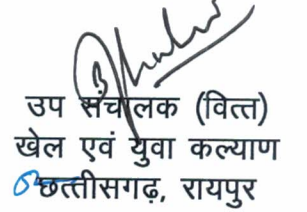 उप संचालक (वित्त)
खेल एवं युवा कल्याण
छत्तीसगढ़, रायपुर